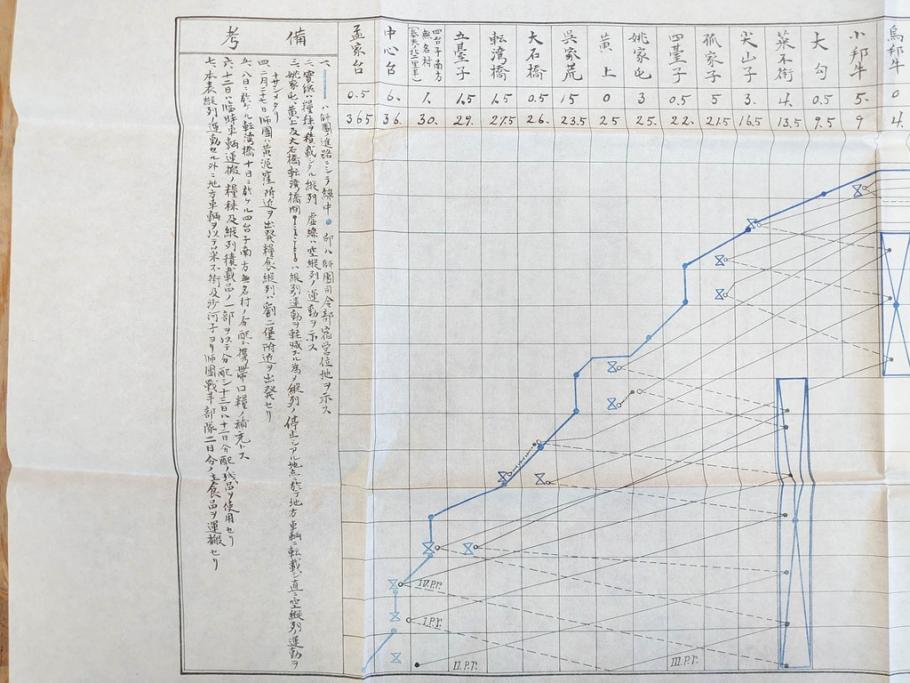 備考
一、━━ハ師團ノ進路ニシテ線中●部ハ師團司令部宿営位地ヲ示ス
二、實線ハ糧秣ヲ積載シタル縦列虚線ハ空縦列ノ運動ヲ示ス
三、姚家屯、黄上及大石橋転湾橋間ハ縦列運動ヲ軽減スル為ノ縦列ノ停止シアル地点ニ於テ地方車輌ニ転載シ直ニ空縦列ノ運動ヲ
ナサシメタリ
四、二月二十七日師團ハ黄泥窪附近ヲ出発糧食縦列ハ劉二堡附近ヲ出発セリ
五、八日ニ於ケル転湾橋十日ニ於ケル四台子南方無名村ノ分配ハ携帯口糧ノ補充トス
六、十二日ハ臨時車輌運搬ノ糧秣及縦列積載品ノ一部ヲ以テ分配シ十三日ハ十二日分配ノ残品ヲ使用セリ
七、本表縦列ノ運動セル外ニ地方車輌ヲ以テ菜不街及沙河子ヨリ師團戦斗部隊二日分ノ主食品ヲ運搬セリ
烏邦牛
小邦牛
大勾
菜不街
尖山子
孤家子
四臺子
姚家屯
黄上
呉家荒
大石橋
転湾橋
五臺子
四台子南方
無名村
中心台
孟家台
0.5 6. 1. 1.5 1.5 0.5 15 0 3 0.5 5 3. 4. 0.5 5. 0
36.5 36. 30. 29. 27.5 26. 23.5 25 25. 22. 21.5 16.5 13.5 9.5 9 4.
IV.P.T.
I.P.T.
II.P.T.
III.P.T.